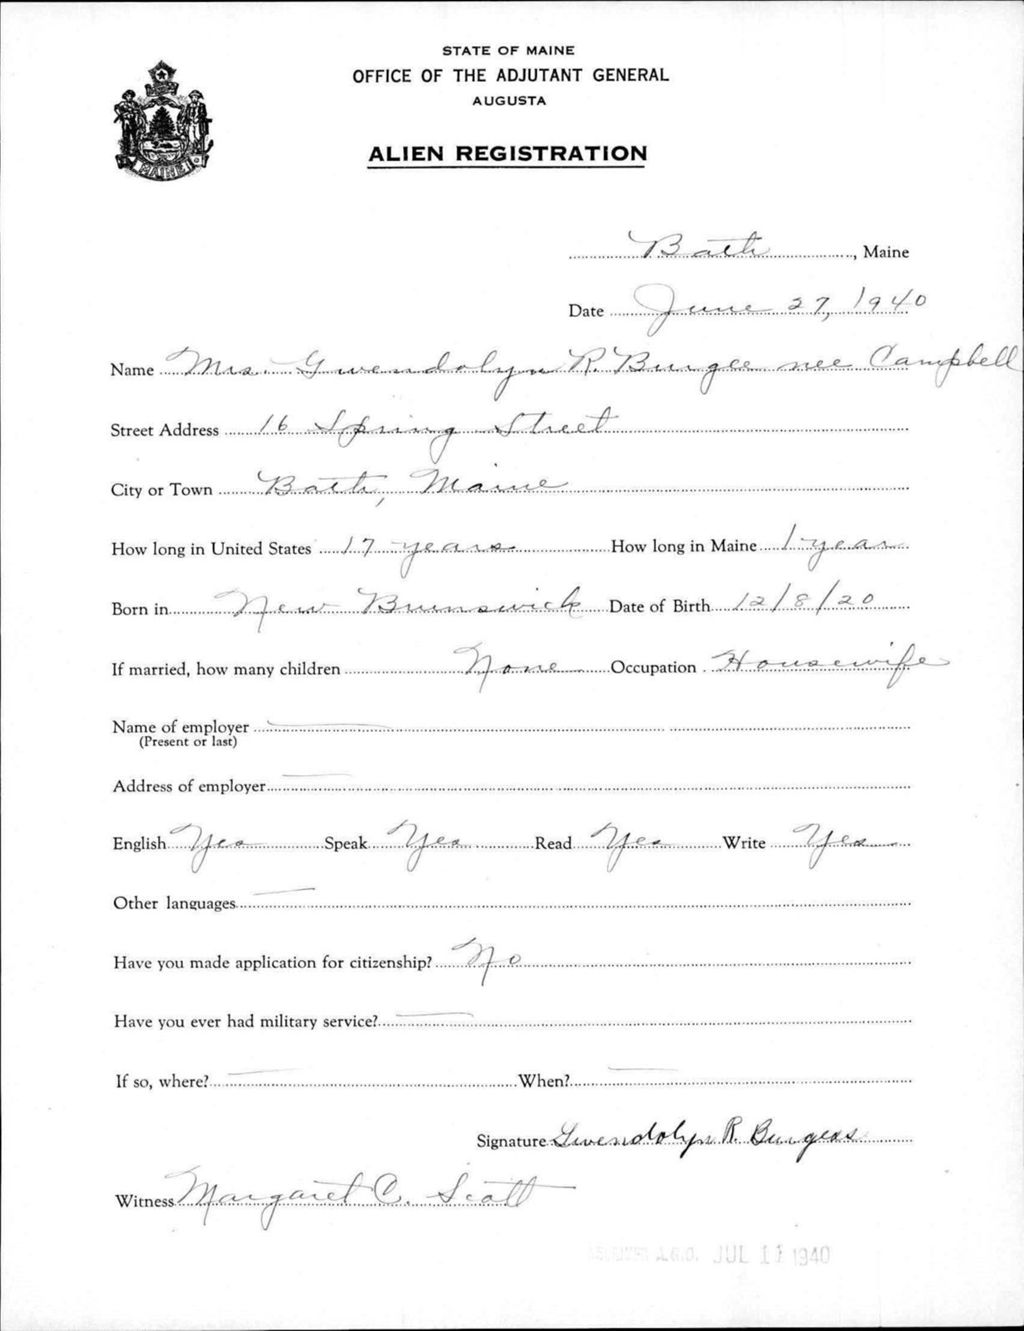 STATE OF MAINE
OFFICE OF THE ADJUTANT GENERAL
AUGUSTA
MAINE
ALIEN REGISTRATION
Bath, Maine
Date June 27, 1940
Name Mrs. Gwendolyn R. Burgee nee Campbell
Street Address 16 Spring Street
City or Town Bath, Maine
How long in United States 17 years How long in Maine 1 year
Born in New Brunswick Date of Birth 12/8/20
If married, how many children None Occupation Housewife
Name of employer
(Present or last)
Address of employer
English Yes Speak Yes Read Yes Write Yes
Other languages
Have you made application for citizenship? No
Have you ever had military service?
If so, where? When?
Signature Gwendolyn R. Burgess
Witness Margaret C. Scott
A.G.O. JUL 11 1940